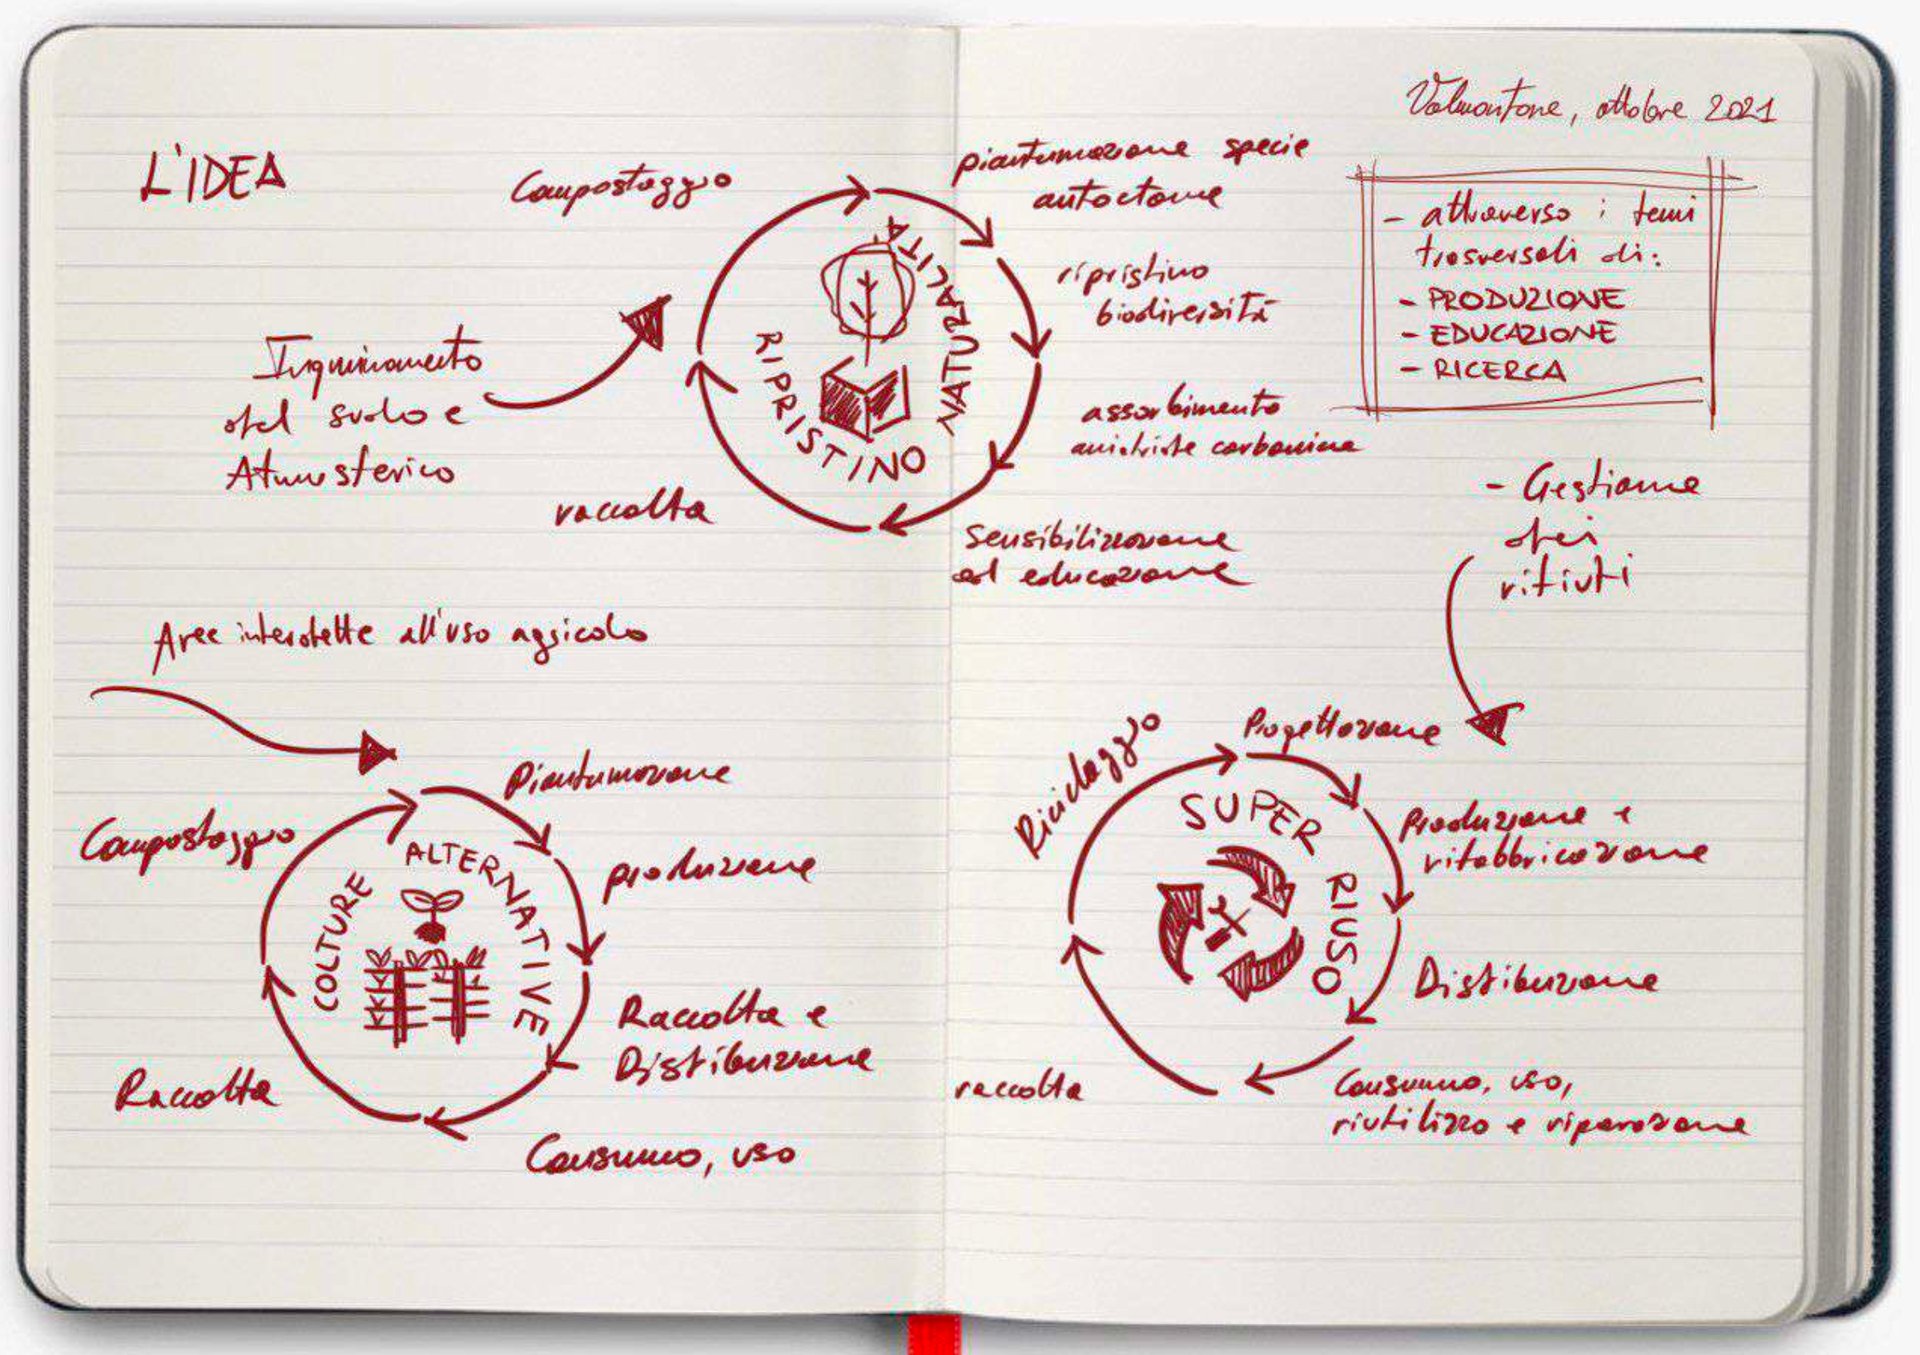 Valmontone, ottobre 2021
L'IDEA
Compostaggio
piantumazione specie
autoctone
ripristino
biodiversità
assorbimento
anidride carbonica
sensibilizzazione
ed educazione
raccolta
RIPRISTINO
NATURALITÀ
Inquinamento
del suolo e
Atmosferico
- attraverso i temi
trasversali di:
- PRODUZIONE
- EDUCAZIONE
- RICERCA
- Gestione
dei
rifiuti
Aree interdette all'uso agricolo
Compostaggio
Piantumazione
produzione
Raccolta e
Distribuzione
Consumo, uso
Raccolta
COLTURE
ALTERNATIVE
Riciclaggio
Progettazione
Produzione e
rifabbricazione
Distribuzione
Consumo, uso,
riutilizzo e riparazione
raccolta
SUPER
RIUSO